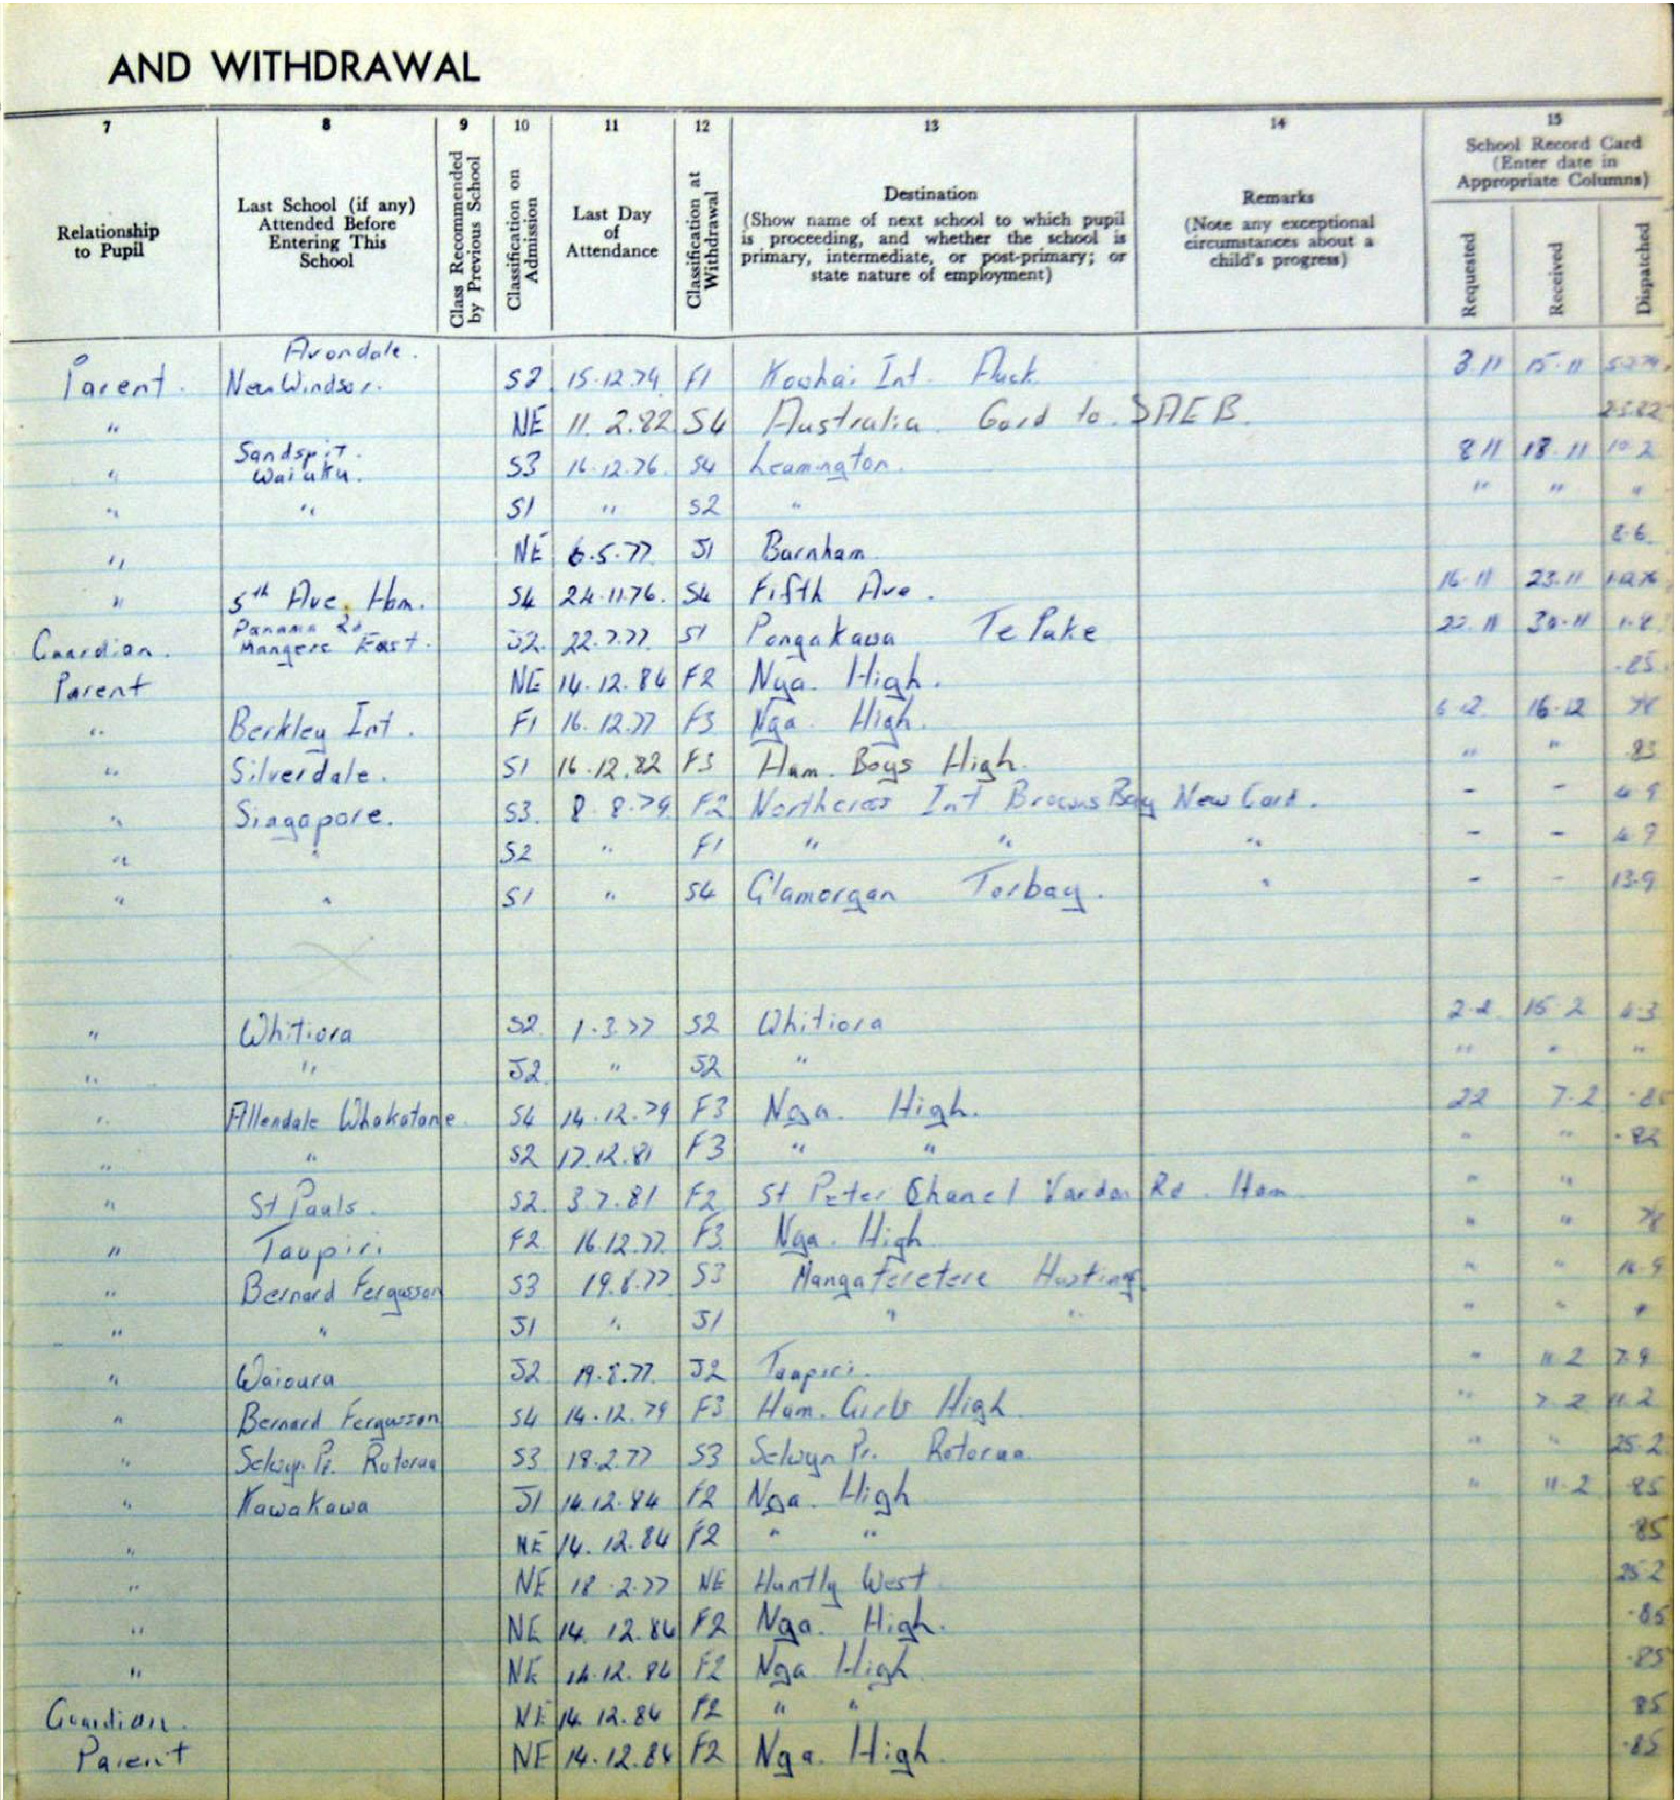 AND WITHDRAWAL
7 8 9 10 11 12 13 14 15
Relationship to Pupil
Last School (if any) Attended Before Entering This School
Class Recommended by Previous School
Classification on Admission
Last Day of Attendance
Classification at Withdrawal
Destination
(Show name of next school to which pupil is proceeding, and whether the school is primary, intermediate, or post-primary; or state nature of employment)
Remarks
(Note any exceptional circumstances about a child's progress)
School Record Card
(Enter date in Appropriate Columns)
Requested Received Dispatched
Avondale.
Parent. New Windsor. S2 15.12.74 F1 Kowhai Int. Auck. 3.11 15.11
" NE 11.2.82 S4 Australia. Card to. SAEB.
Sandspit.
" Waiuku. S3 16.12.76. S4 Leamington. 8.11 18.11 10.2
" " S1 " S2 " " " "
" NE 6.5.77 J1 Burnham. 8.6
" 5th Ave. Ham. S4 24.11.76. S4 Fifth Ave. 16.11 23.11
Panama Rd
Guardian. Mangere East. J2. 22.7.77. S1 Pongakawa Te Puke 22.11 30.11 1.8
Parent NE 14.12.84 F2 Nga. High. .85
" Berkley Int. F1 16.12.77 F3 Nga. High. 16.12
" Silverdale. S1 16.12.82 F3 Ham. Boys High. " " .83
" Singapore. S3. 8.8.79. F2 Northcross Int Browns Bay New Card. - - 4.9
" " S2 " F1 " " " - - 4.9
" " S1 " S4 Glamorgan Torbay. " - - 13.9
" Whitiora S2. 1.3.77 S2 Whitiora 2.2. 15.2 4.3
" " J2. " J2 " " " "
" Allendale Whakatane. S4 14.12.79 F3 Nga. High. 22 7.2
" " S2 17.12.81 F3 " " " " .82
" St Pauls. S2. 3.7.81 F2 St Peter Chanel Vardon Rd. Ham. " "
" Taupiri F2 16.12.77. F3. Nga. High " "
" Bernard Fergusson S3 19.8.77 S3 Mangateretere Hastings. " "
" " J1 " J1 " " " " "
" Waioura J2 19.8.77. J2 Taupiri. " 11.2 7.9
" Bernard Fergusson S4 14.12.79 F3 Ham. Girls High. " 7.2 11.2
" Selwyn Pr. Rotorua S3 18.2.77 S3 Selwyn Pr. Rotorua. " " 25.2
" Kawakawa J1 14.12.84 F2 Nga. High " 11.2 .85
" NE 14.12.84 F2 " " .85
" NE 18.2.77 NE Huntly West. 25.2
" NE 14.12.84 F2 Nga. High. .85
" NE 14.12.84 F2 Nga. High. .85
Guardian. NE 14.12.84 F2 " " 85
Parent NE 14.12.84 F2 Nga. High. .85